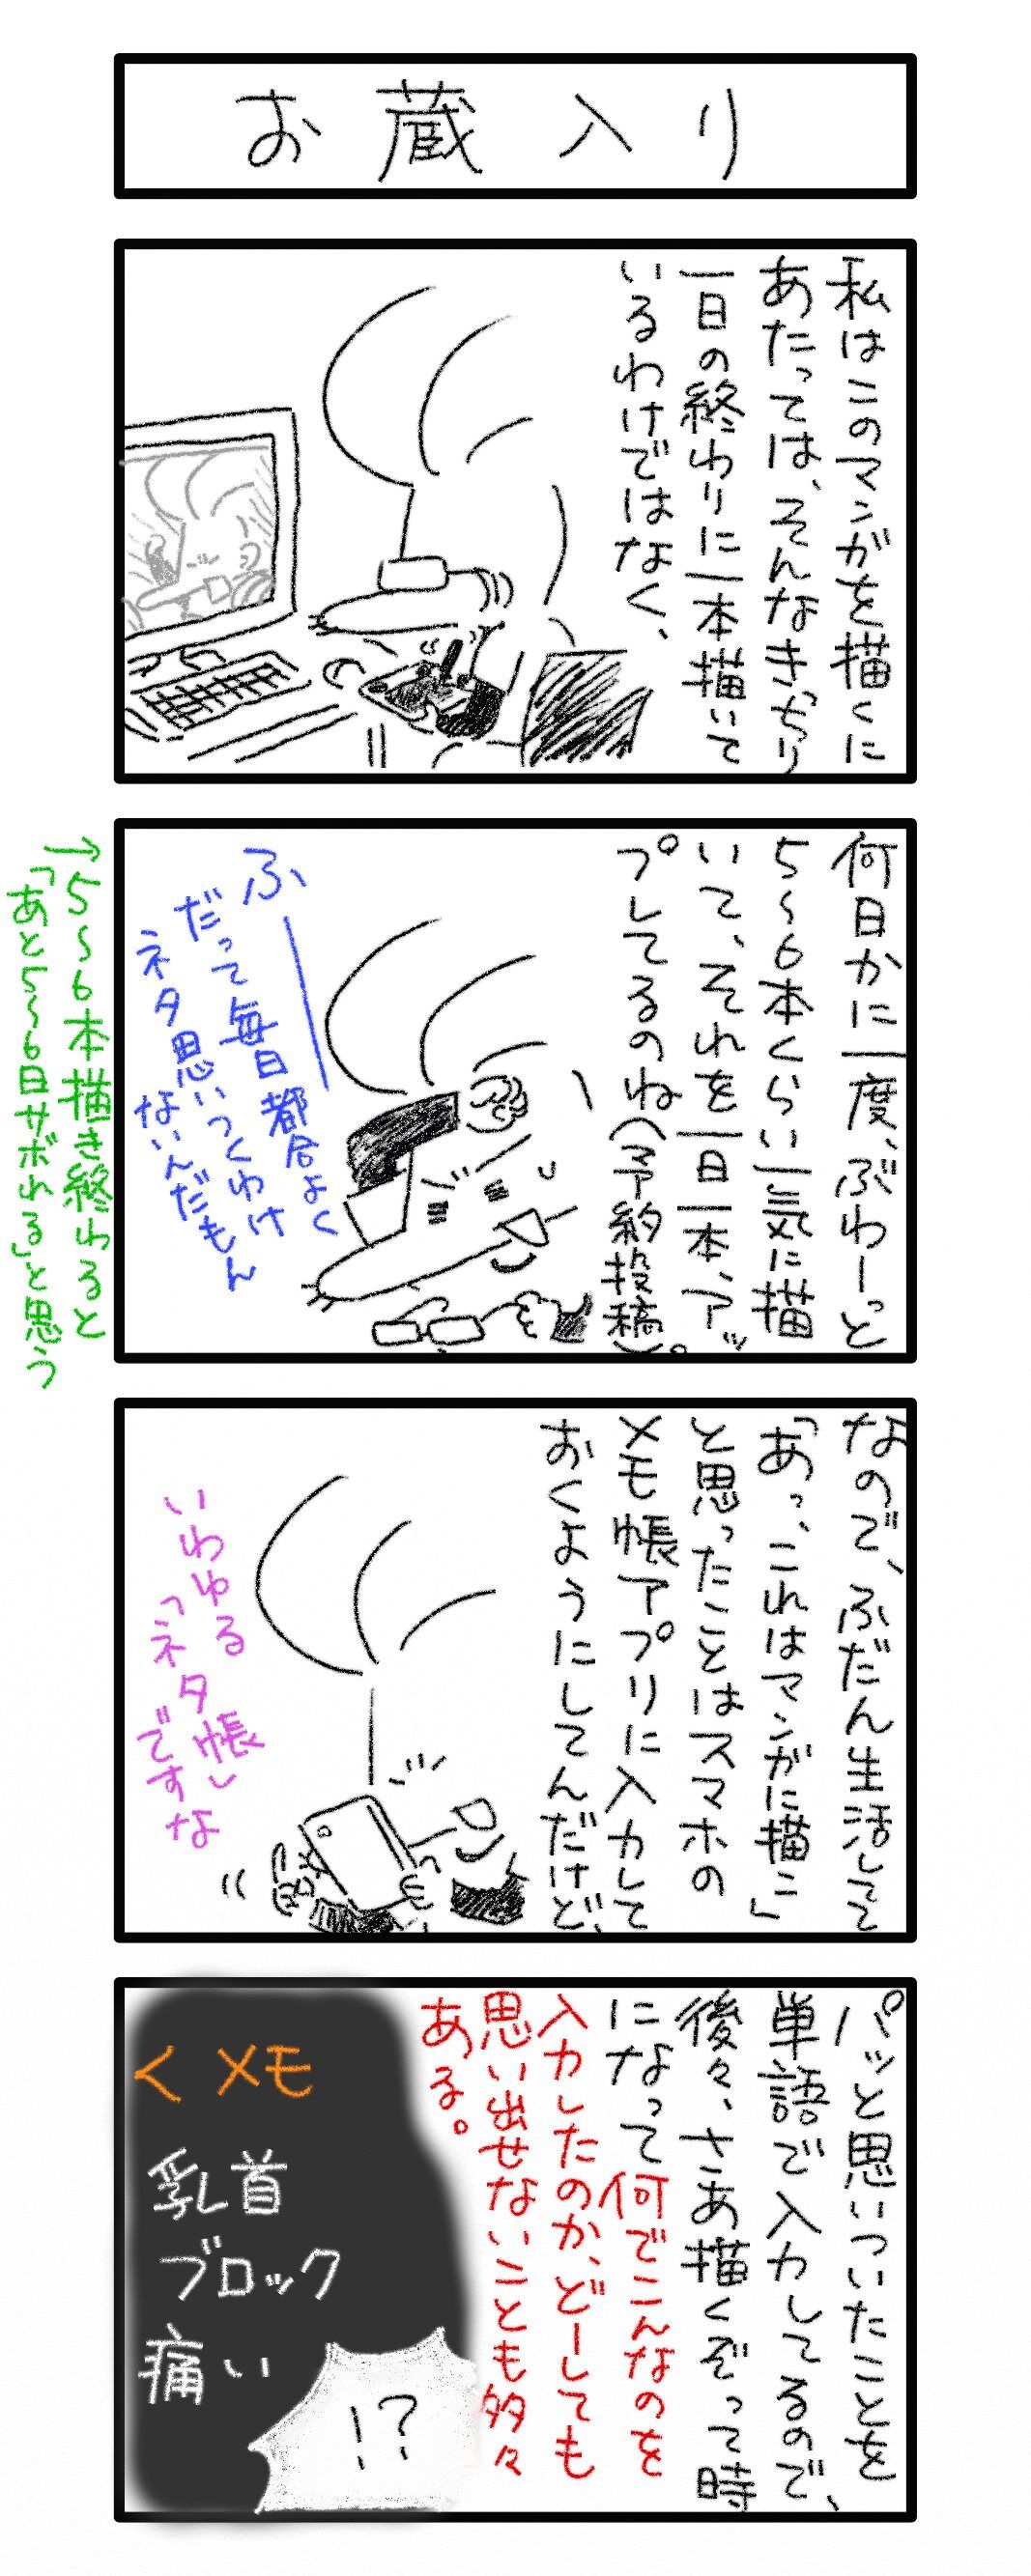 お蔵入り
私はこのマンガを描くに
あたっては、そんなきっちり
一日の終わりに一本描いて
いるわけではなく、
何日かに一度、ぶわーっと
5〜6本くらい一気に描
いて、それを一日一本、アッ
プしてるのね(予約投稿)。
ふ、
だって毎日都合よく
ネタ思いつくわけ
ないんだもん
→5〜6本描き終わると
「あと5〜6日サボれる」と思う
なので、ふだん生活してて
「あっ、これはマンガに描こ」
と思ったことはスマホの
メモ帳アプリに入力して
おくようにしてんだけど、
いわゆる
「ネタ帳」
ですな
パッと思いついたことを
単語で入力してるので、
後々、さあ描くぞって時
になって何でこんなのを
入力したのか、どーしても
思い出せないことも多々
ある。
く メモ
乳首
ブロック
痛い
!?